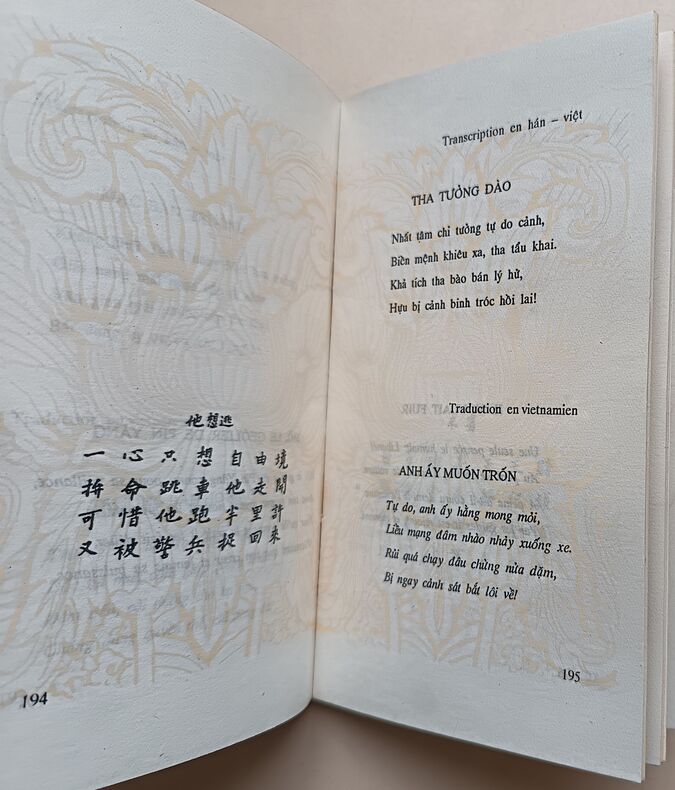 他想逃
一心只想自由境
拚命跳車他走開
可惜他跑半里許
又被警兵捉回來
194
Transcription en hán – việt
THA TƯỞNG DÀO
Nhất tâm chỉ tưởng tự do cảnh,
Biền mệnh khiêu xa, tha tẩu khai.
Khả tích tha bào bán lý hử,
Hựu bị cảnh binh tróc hồi lai!
Traduction en vietnamien
ANH ẤY MUỐN TRỐN
Tự do, anh ấy hằng mong mỏi,
Liều mạng đâm nhào nhảy xuống xe.
Rủi quá chạy đâu chừng nửa dặm,
Bị ngay cảnh sát bắt lôi về!
195